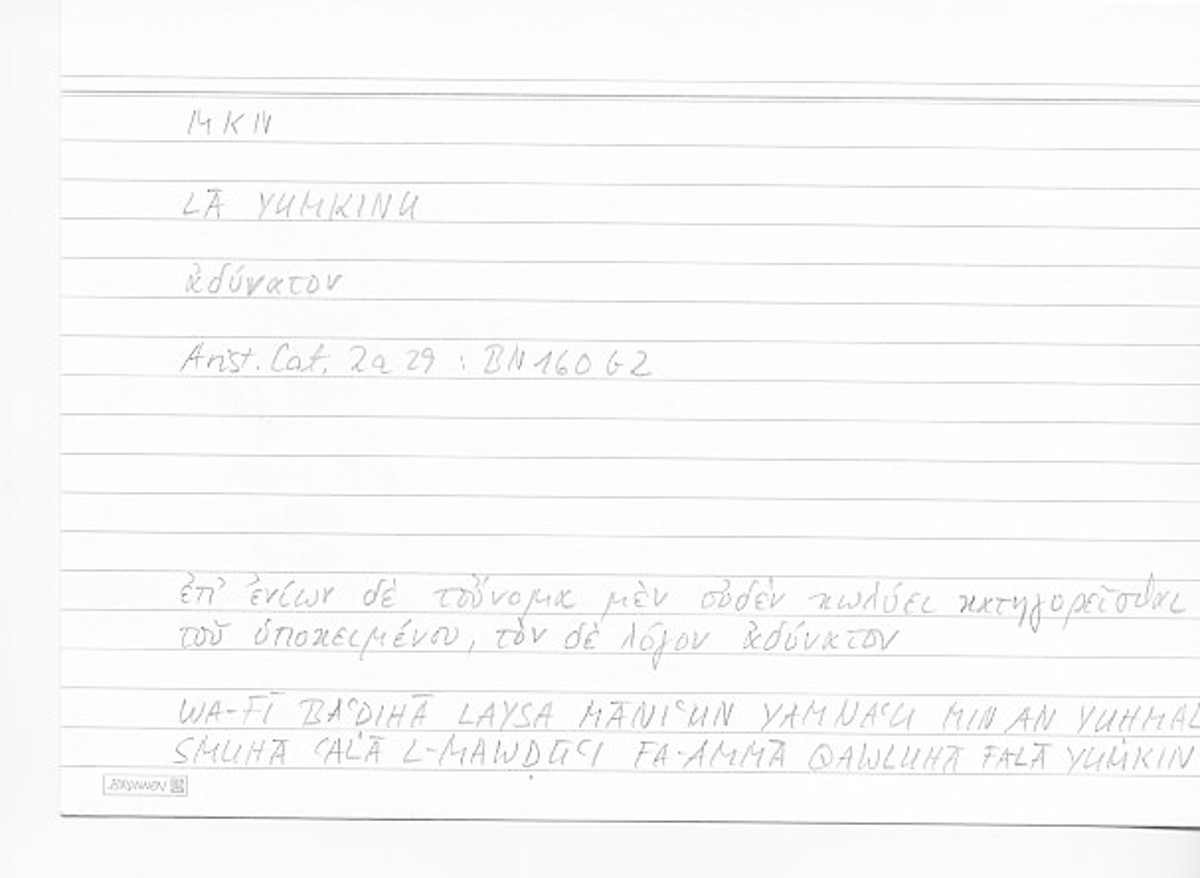 MKN
LĀ YUMKINU
ἀδύνατον
Arist. Cat. 2a 29 : BN 160 b 2
ἐπ' ἐνίων δὲ τοὔνομα μὲν οὐδὲν κωλύει κατηγορεῖσθαι
τοῦ ὑποκειμένου, τὸν δὲ λόγον ἀδύνατον
WA-FĪ BAʿḌIHĀ LAYSA MĀNIʿUN YAMNAʿU MIN AN YUḤMAL
SMUHĀ ʿALĀ L-MAWḌŪʿI FA-AMMĀ QAWLUHĀ FALĀ YUMKIN
BRUNNEN